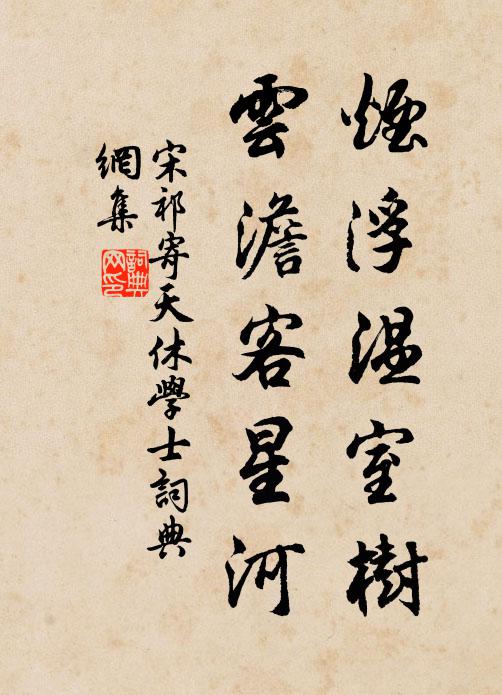 煙浮溫室樹
雲澹客星河
宋祁寄天休學士詞典
網集
詞典网印